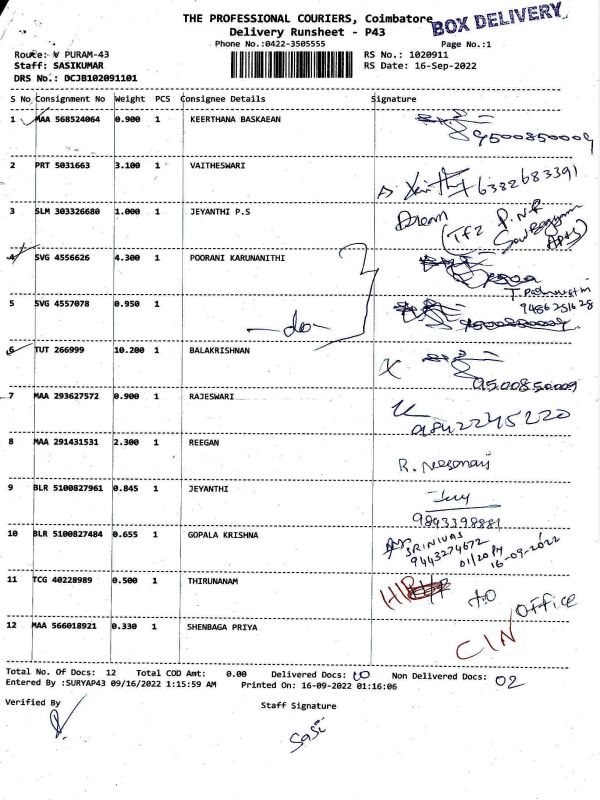 THE PROFESSIONAL COURIERS, Coimbatore
BOX DELIVERY
Delivery Runsheet - P43
Phone No.:0422-3505555 Page No.:1
Route: V PURAM-43 RS No.: 1020911
Staff: SASIKUMAR RS Date: 16-Sep-2022
DRS No.: DCJB102091101
S No Consignment No Weight PCS Consignee Details Signature
1 MAA 568524064 0.900 1 KEERTHANA BASKAEAN
9500850009
2 PRT 5031663 3.100 1 VAITHESWARI
6382683391
3 SLM 303326680 1.000 1 JEYANTHI P.S
4 SVG 4556626 4.300 1 POORANI KARUNANITHI
5 SVG 4557078 0.950 1
-do-
6 TUT 266999 10.200 1 BALAKRISHNAN
9500850009
7 MAA 293627572 0.900 1 RAJESWARI
9842245220
8 MAA 291431531 2.300 1 REEGAN
9 BLR 5100827961 0.845 1 JEYANTHI
9843398881
10 BLR 5100827484 0.655 1 GOPALA KRISHNA
SRINIVAS
9443274672
01/20 PM
16-09-2022
11 TCG 40228989 0.500 1 THIRUNANAM
to office
12 MAA 566018921 0.330 1 SHENBAGA PRIYA
CIN
Total No. Of Docs: 12 Total COD Amt: 0.00 Delivered Docs: 10 Non Delivered Docs: 02
Entered By :SURYAP43 09/16/2022 1:15:59 AM Printed On: 16-09-2022 01:16:06
Verified By Staff Signature
Sasi